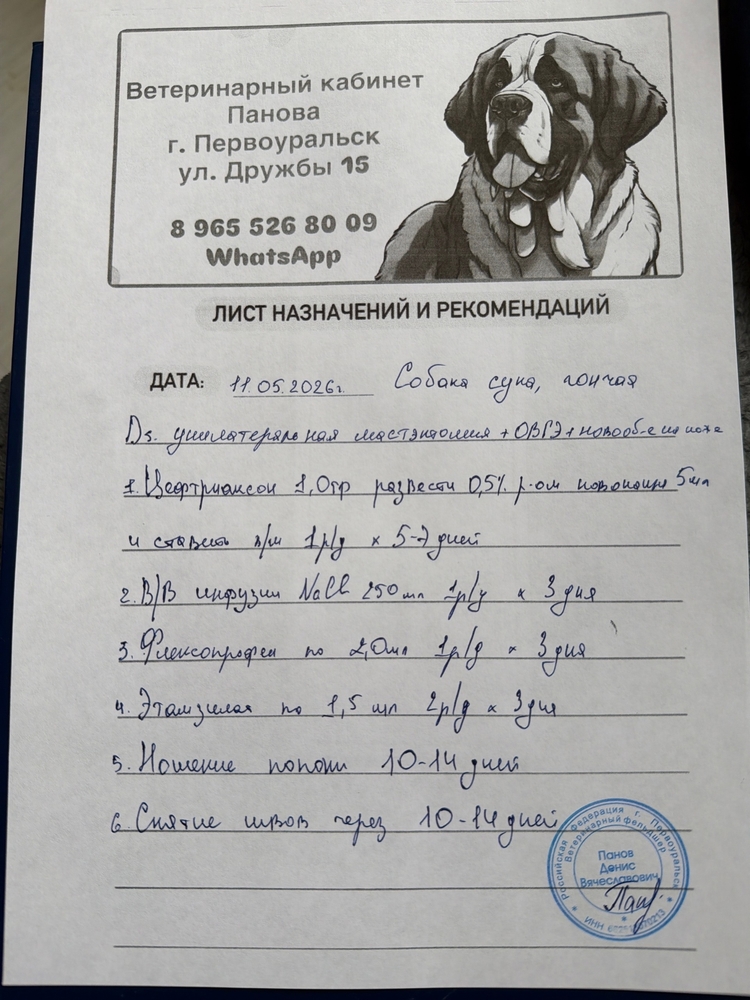 Ветеринарный кабинет
Панова
г. Первоуральск
ул. Дружбы 15
8 965 526 80 09
WhatsApp
ЛИСТ НАЗНАЧЕНИЙ И РЕКОМЕНДАЦИЙ
ДАТА: 11.05.2026г. Собака сука, гончая
Ds. унилатеральная мастэктомия + ОВГЭ + новооб-е
1. Цефтриаксон 1,0гр развести 0,5% р-ом новокаина 5мл
и ставить в/м 1р/д х 5-7 дней
2. В/В инфузии NaCl 250мл 1р/д х 3 дня
3. Флексопрофен по 2,0мл 1р/д х 3 дня
4. Этамзилат по 1,5 мл 2р/д х 3дня
5. Ношение попоны 10-14 дней
6. Снятие швов через 10-14 дней
Российская Федерация г. Первоуральск
Ветеринарный фельдшер
Панов
Денис
Вячеславович
ИНН